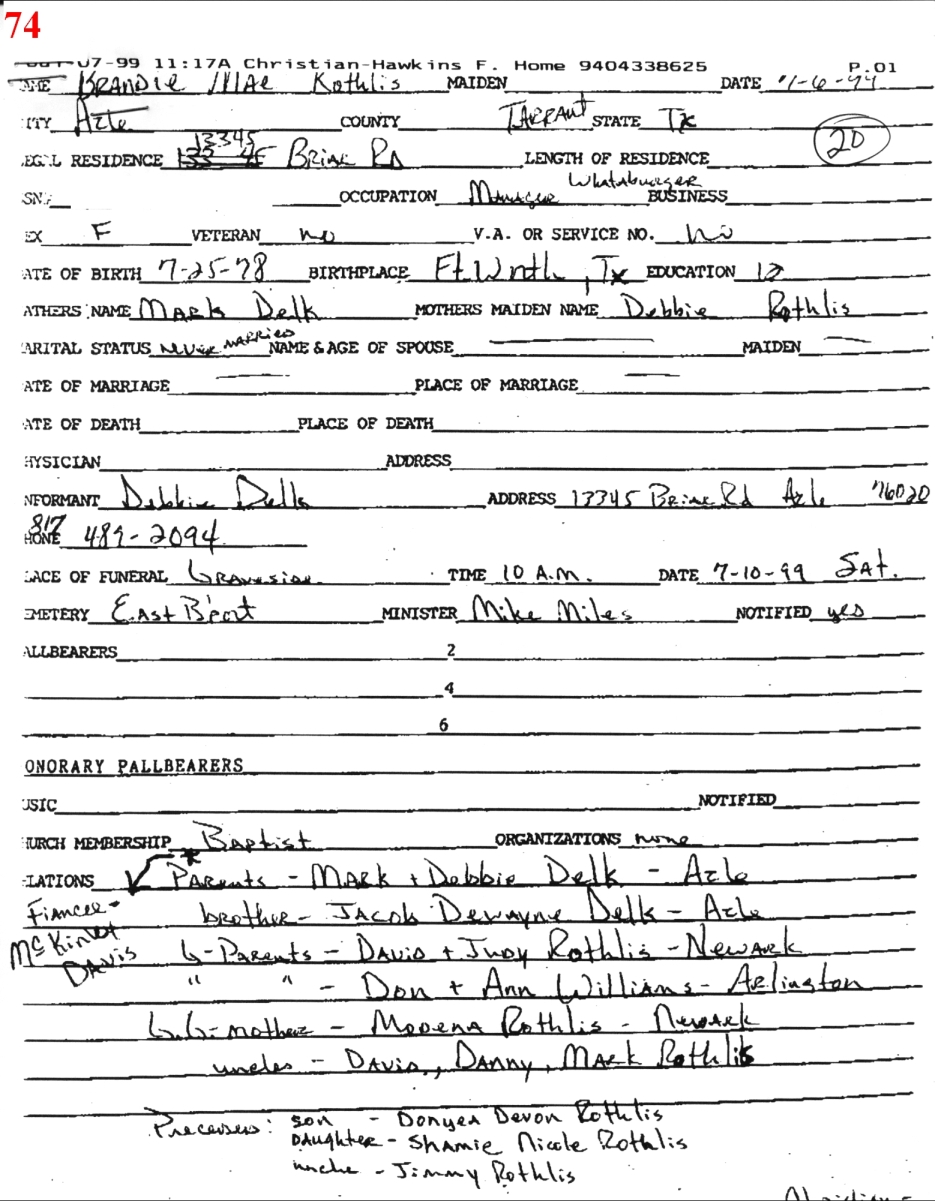 74
07-99 11:17A Christian-Hawkins F. Home 9404338625 P.01
AME Brandie Mae Rothlis MAIDEN DATE 7-6-99
ITY Azle COUNTY TARRANT STATE Tx
20
13345
EGAL RESIDENCE Briar RD LENGTH OF RESIDENCE
Whataburger
SN OCCUPATION Manager BUSINESS
EX F VETERAN no V.A. OR SERVICE NO. No
ATE OF BIRTH 7-25-78 BIRTHPLACE Ft Worth, Tx EDUCATION 12
ATHERS NAME Mark Delk MOTHERS MAIDEN NAME Debbie Rothlis
ARITAL STATUS Never MARRIED NAME & AGE OF SPOUSE MAIDEN
ATE OF MARRIAGE PLACE OF MARRIAGE
ATE OF DEATH PLACE OF DEATH
HYSICIAN ADDRESS
NFORMANT Debbie Delk ADDRESS 13345 Briar Rd Azle 76020
817
HONE 489-2094
LACE OF FUNERAL Graveside TIME 10 A.M. DATE 7-10-99 SAt.
EMETERY EASt B'port MINISTER Mike Miles NOTIFIED yes
ALLBEARERS 2
4
6
ONORARY PALLBEARERS
USIC NOTIFIED
HURCH MEMBERSHIP Baptist ORGANIZATIONS none
ELATIONS * PARents - MARK + Debbie Delk - Azle
Fiancee - brother - JACOb Dewayne Delk - Azle
McKinley DAVIS G-PARents - DAVID + Judy Rothlis - Newark
" " - Don + Ann Williams - Arlington
G.G-mother - Modena Rothlis - Newark
uncles - DAVID, DAnny, MArk Rothlis
Preceded: son - Donyea Devon Rothlis
DAughter - Shamie Nicole Rothlis
uncle - Jimmy Rothlis